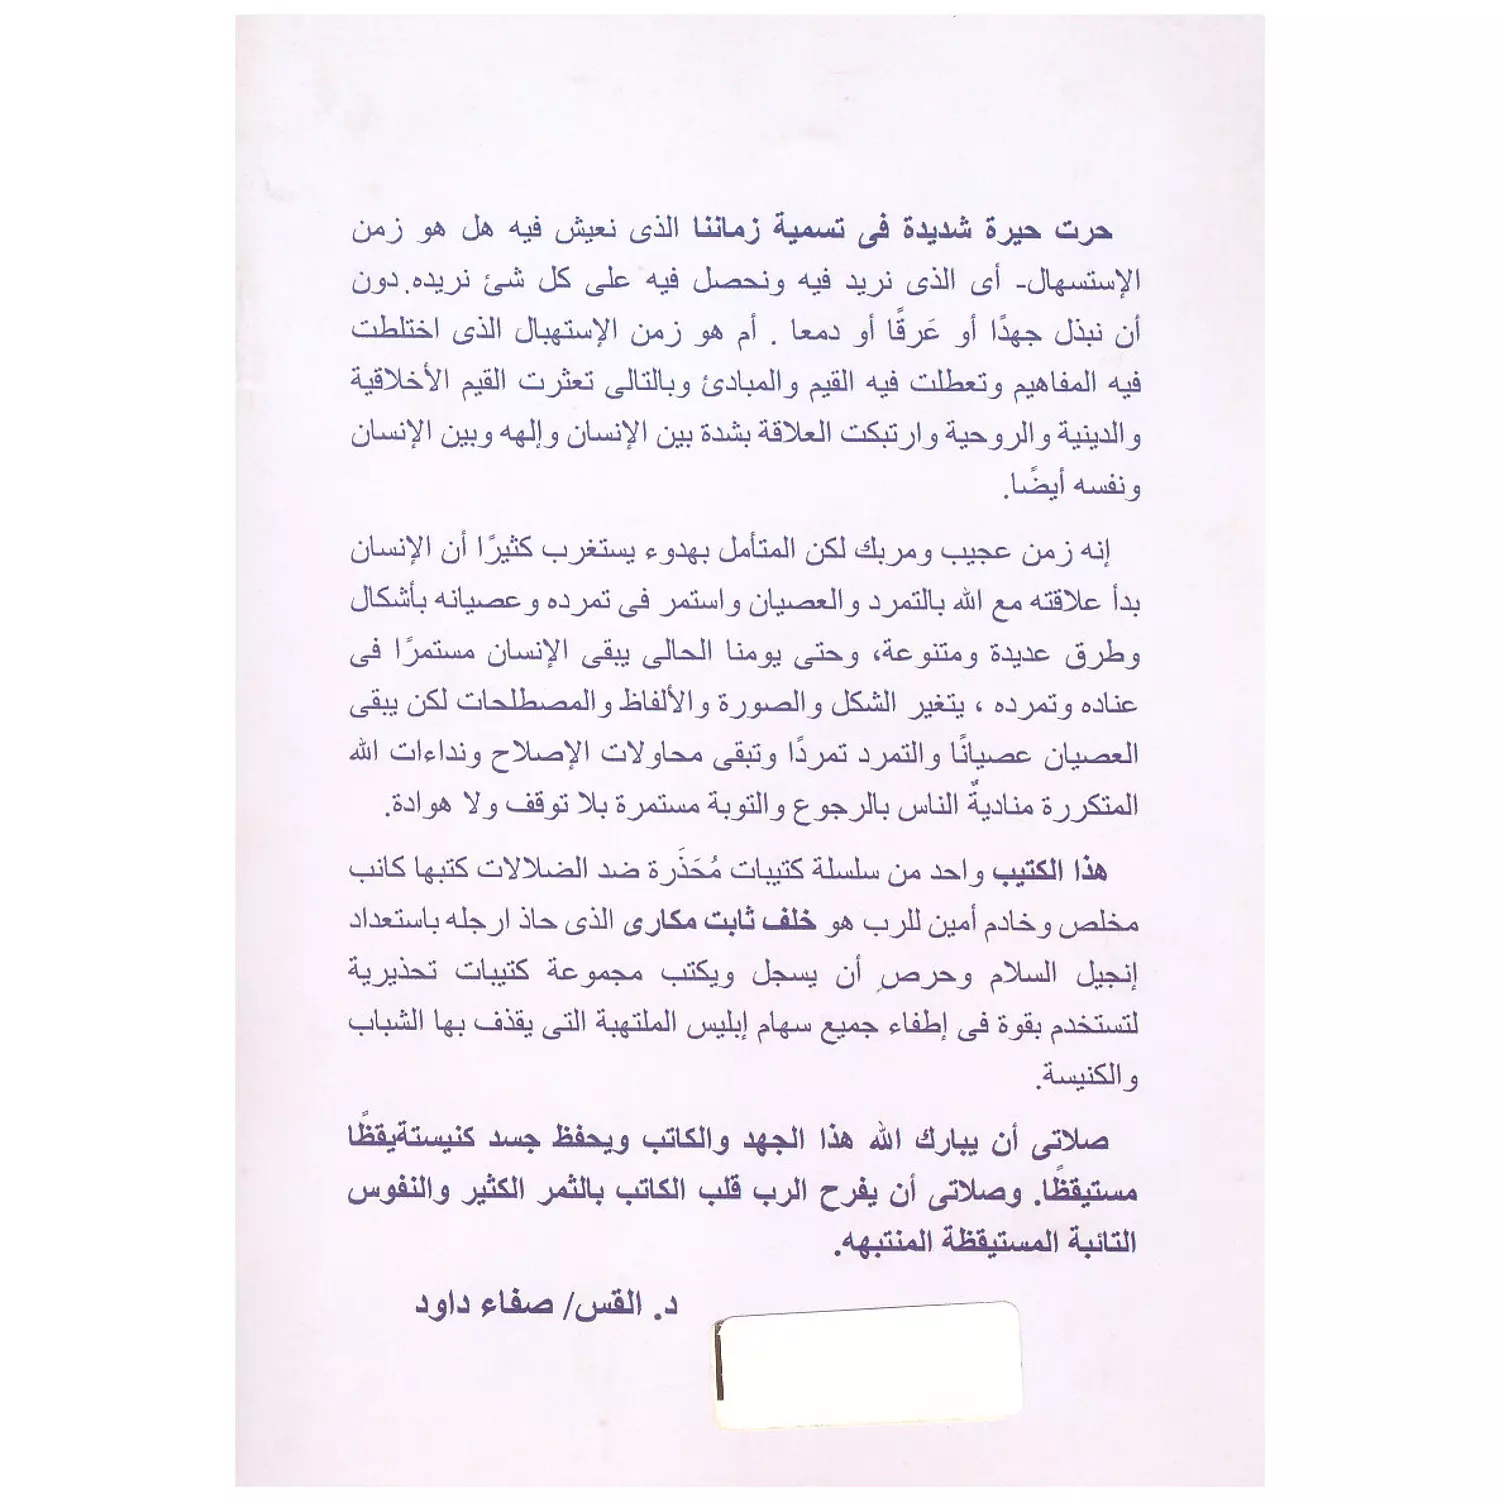 حرت حيرة شديدة فى تسمية زماننا الذى نعيش فيه هل هو زمن
الإستسهال- أى الذى نريد فيه ونحصل فيه على كل شئ نريده. دون
أن نبذل جهدًا أو عَرقًا أو دمعا . أم هو زمن الإستهبال الذى اختلطت
فيه المفاهيم وتعطلت فيه القيم والمبادئ وبالتالى تعثرت القيم الأخلاقية
والدينية والروحية وارتبكت العلاقة بشدة بين الإنسان وإلهه وبين الإنسان
ونفسه أيضًا.
إنه زمن عجيب ومربك لكن المتأمل بهدوء يستغرب كثيرًا أن الإنسان
بدأ علاقته مع الله بالتمرد والعصيان واستمر فى تمرده وعصيانه بأشكال
وطرق عديدة ومتنوعة، وحتى يومنا الحالى يبقى الإنسان مستمرًا فى
عناده وتمرده ، يتغير الشكل والصورة والألفاظ والمصطلحات لكن يبقى
العصيان عصيانًا والتمرد تمردًا وتبقى محاولات الإصلاح ونداءات الله
المتكررة مناديةٌ الناس بالرجوع والتوبة مستمرة بلا توقف ولا هوادة.
هذا الكتيب واحد من سلسلة كتيبات مُحَذَرة ضد الضلالات كتبها كاتب
مخلص وخادم أمين للرب هو خلف ثابت مكارى الذى حاذ ارجله باستعداد
إنجيل السلام وحرص أن يسجل ويكتب مجموعة كتيبات تحذيرية
لتستخدم بقوة فى إطفاء جميع سهام إبليس الملتهبة التى يقذف بها الشباب
والكنيسة.
صلاتى أن يبارك الله هذا الجهد والكاتب ويحفظ جسد كنيستةيقظًا
مستيقظًا. وصلاتى أن يفرح الرب قلب الكاتب بالثمر الكثير والنفوس
التائبة المستيقظة المنتبهه.
د. القس/ صفاء داود